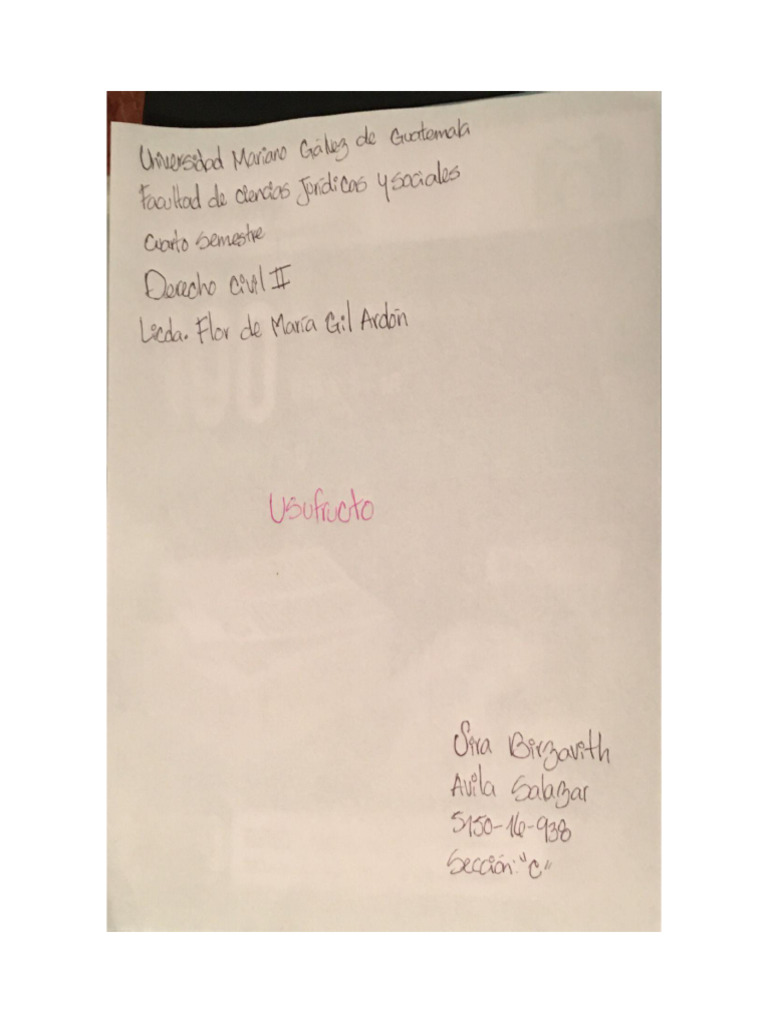 Universidad Mariano Gálvez de Guatemala
Facultad de ciencias Jurídicas y sociales
Cuarto semestre
Derecho civil II
Licda. Flor de María Gil Ardón
Usufructo
Sira Birzavith
Avila Salazar
5150-16-938
Sección: "C"